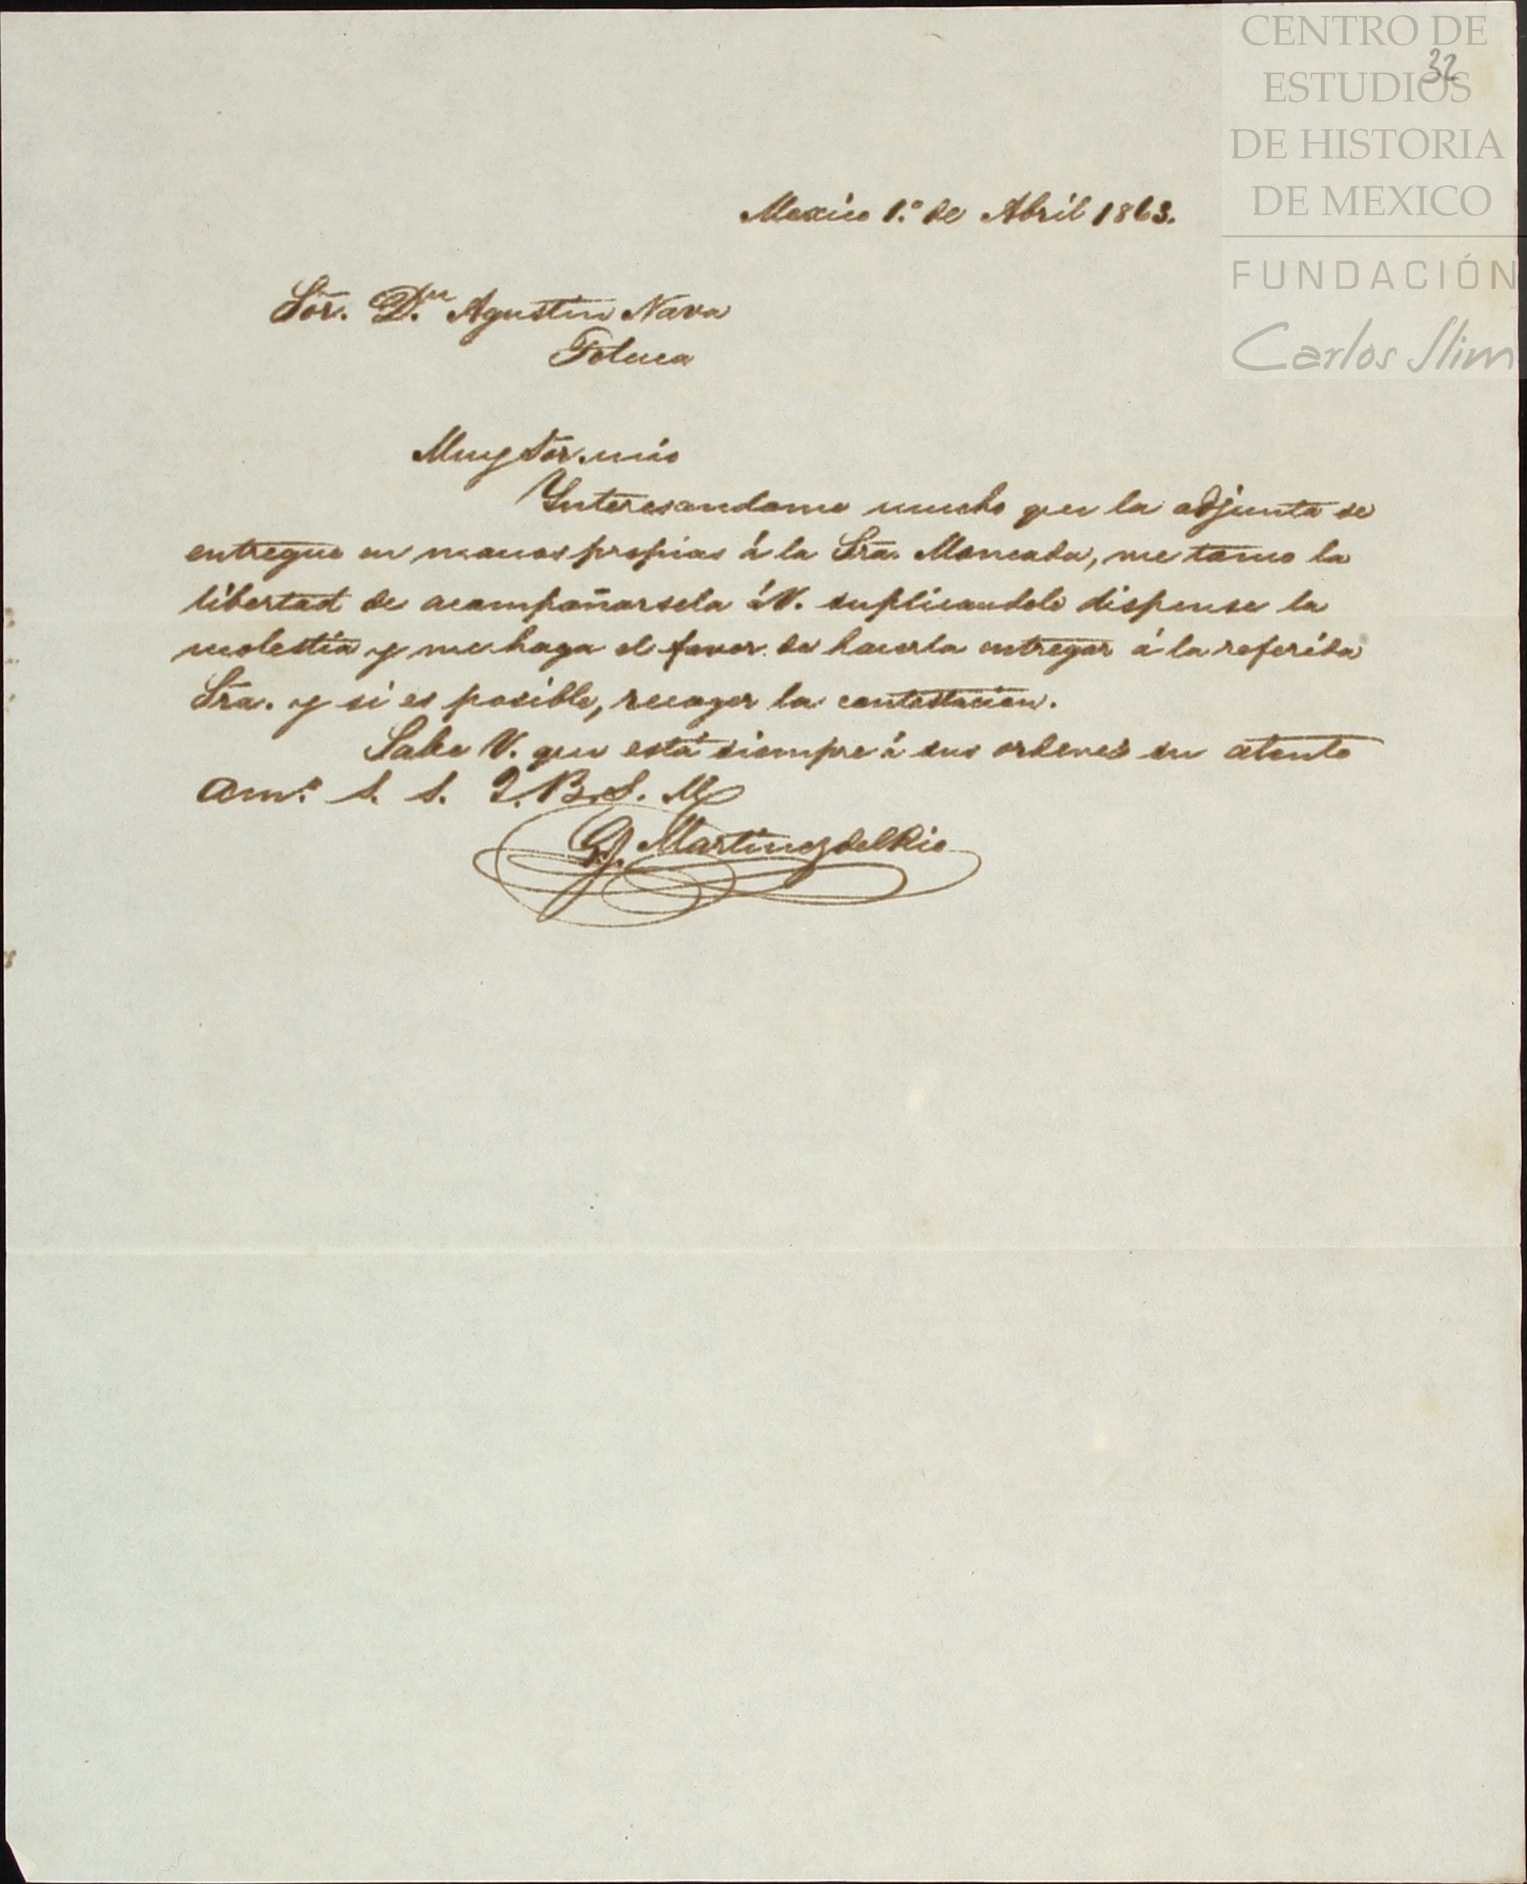 CENTRO DE
32
ESTUDIOS
DE HISTORIA
DE MEXICO
FUNDACIÓN
Carlos Slim
Mexico 1.º de Abril 1863.
Sõr. D.n Agustin Nava
Toluca
Muy Sõr. mio
Interesandome mucho que la adjunta se
entregue en manos propias á la Sra. Moncada, me tomo la
libertad de acompañarsela á V. suplicandole dispense la
molestia y me haga el favor de hacerla entregar á la referida
Sra. y si es posible, recoger la contestacion.
Sabe V. que está siempre á sus ordenes su atento
Am.º S. S. Q. B. S. M
G. Martinez del Rio